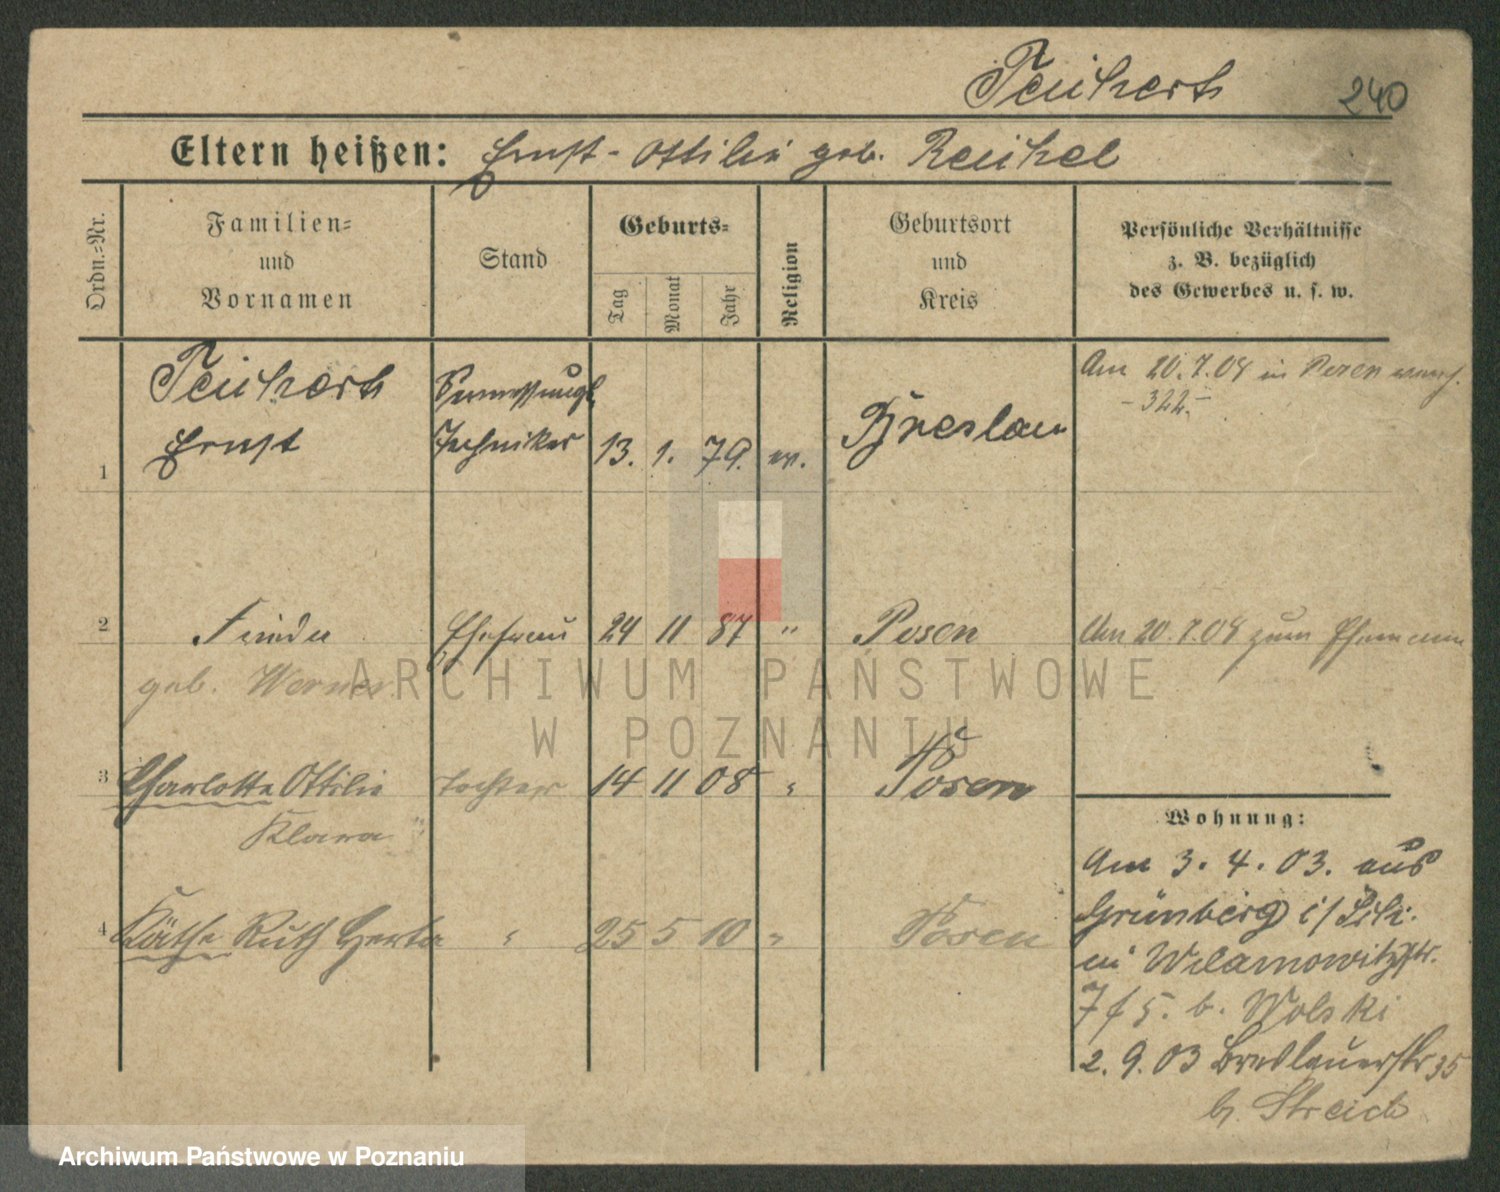 Teichert 240
Eltern heißen: Ernst - Ottilie geb. Reichel
Ordn.=Nr.
Familien=
und
Vornamen
Stand
Geburts=
Tag
Monat
Jahr
Religion
Geburtsort
und
Kreis
Persönliche Verhältnisse
z. B. bezüglich
des Gewerbes u. s. w.
1
Teichert
Ernst
Vermessungs
Techniker
13. 1. 79. ev.
Breslau
Am 20.7.08 in Posen
- 322 -
2 Ehefrau 24 11 87 " Posen Am 20.7.08 zum Ehemann
geb. Werner
3 Charlotte Ottilie Tochter 14 11 08 " Posen
Klara
4 Käthe Ruth Herta " 25 5 10 " Posen
Wohnung:
Am 3. 4. 03. aus
Grünberg i/Schl.
in Wilamowitzstr.
7 b. Wolski
2. 9. 03 Breslauerstr 35
b. Streich
ARCHIWUM PAŃSTWOWE
W POZNANIU
Archiwum Państwowe w Poznaniu